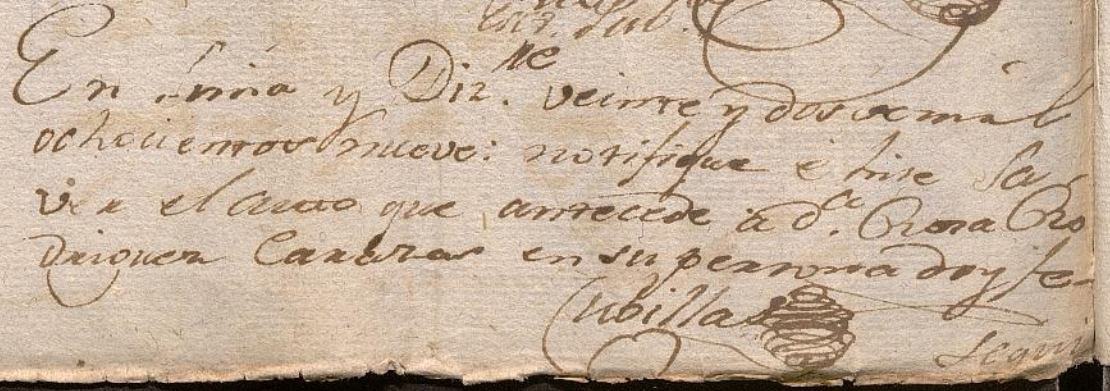 En Lima y Diz.re veinte y dos de mil
ochocientos nueve: notifique è hise sa
ver el auto que antecede à d.a Rosa Ro
driguez Cararas en su persona doy fe-
Cubillas